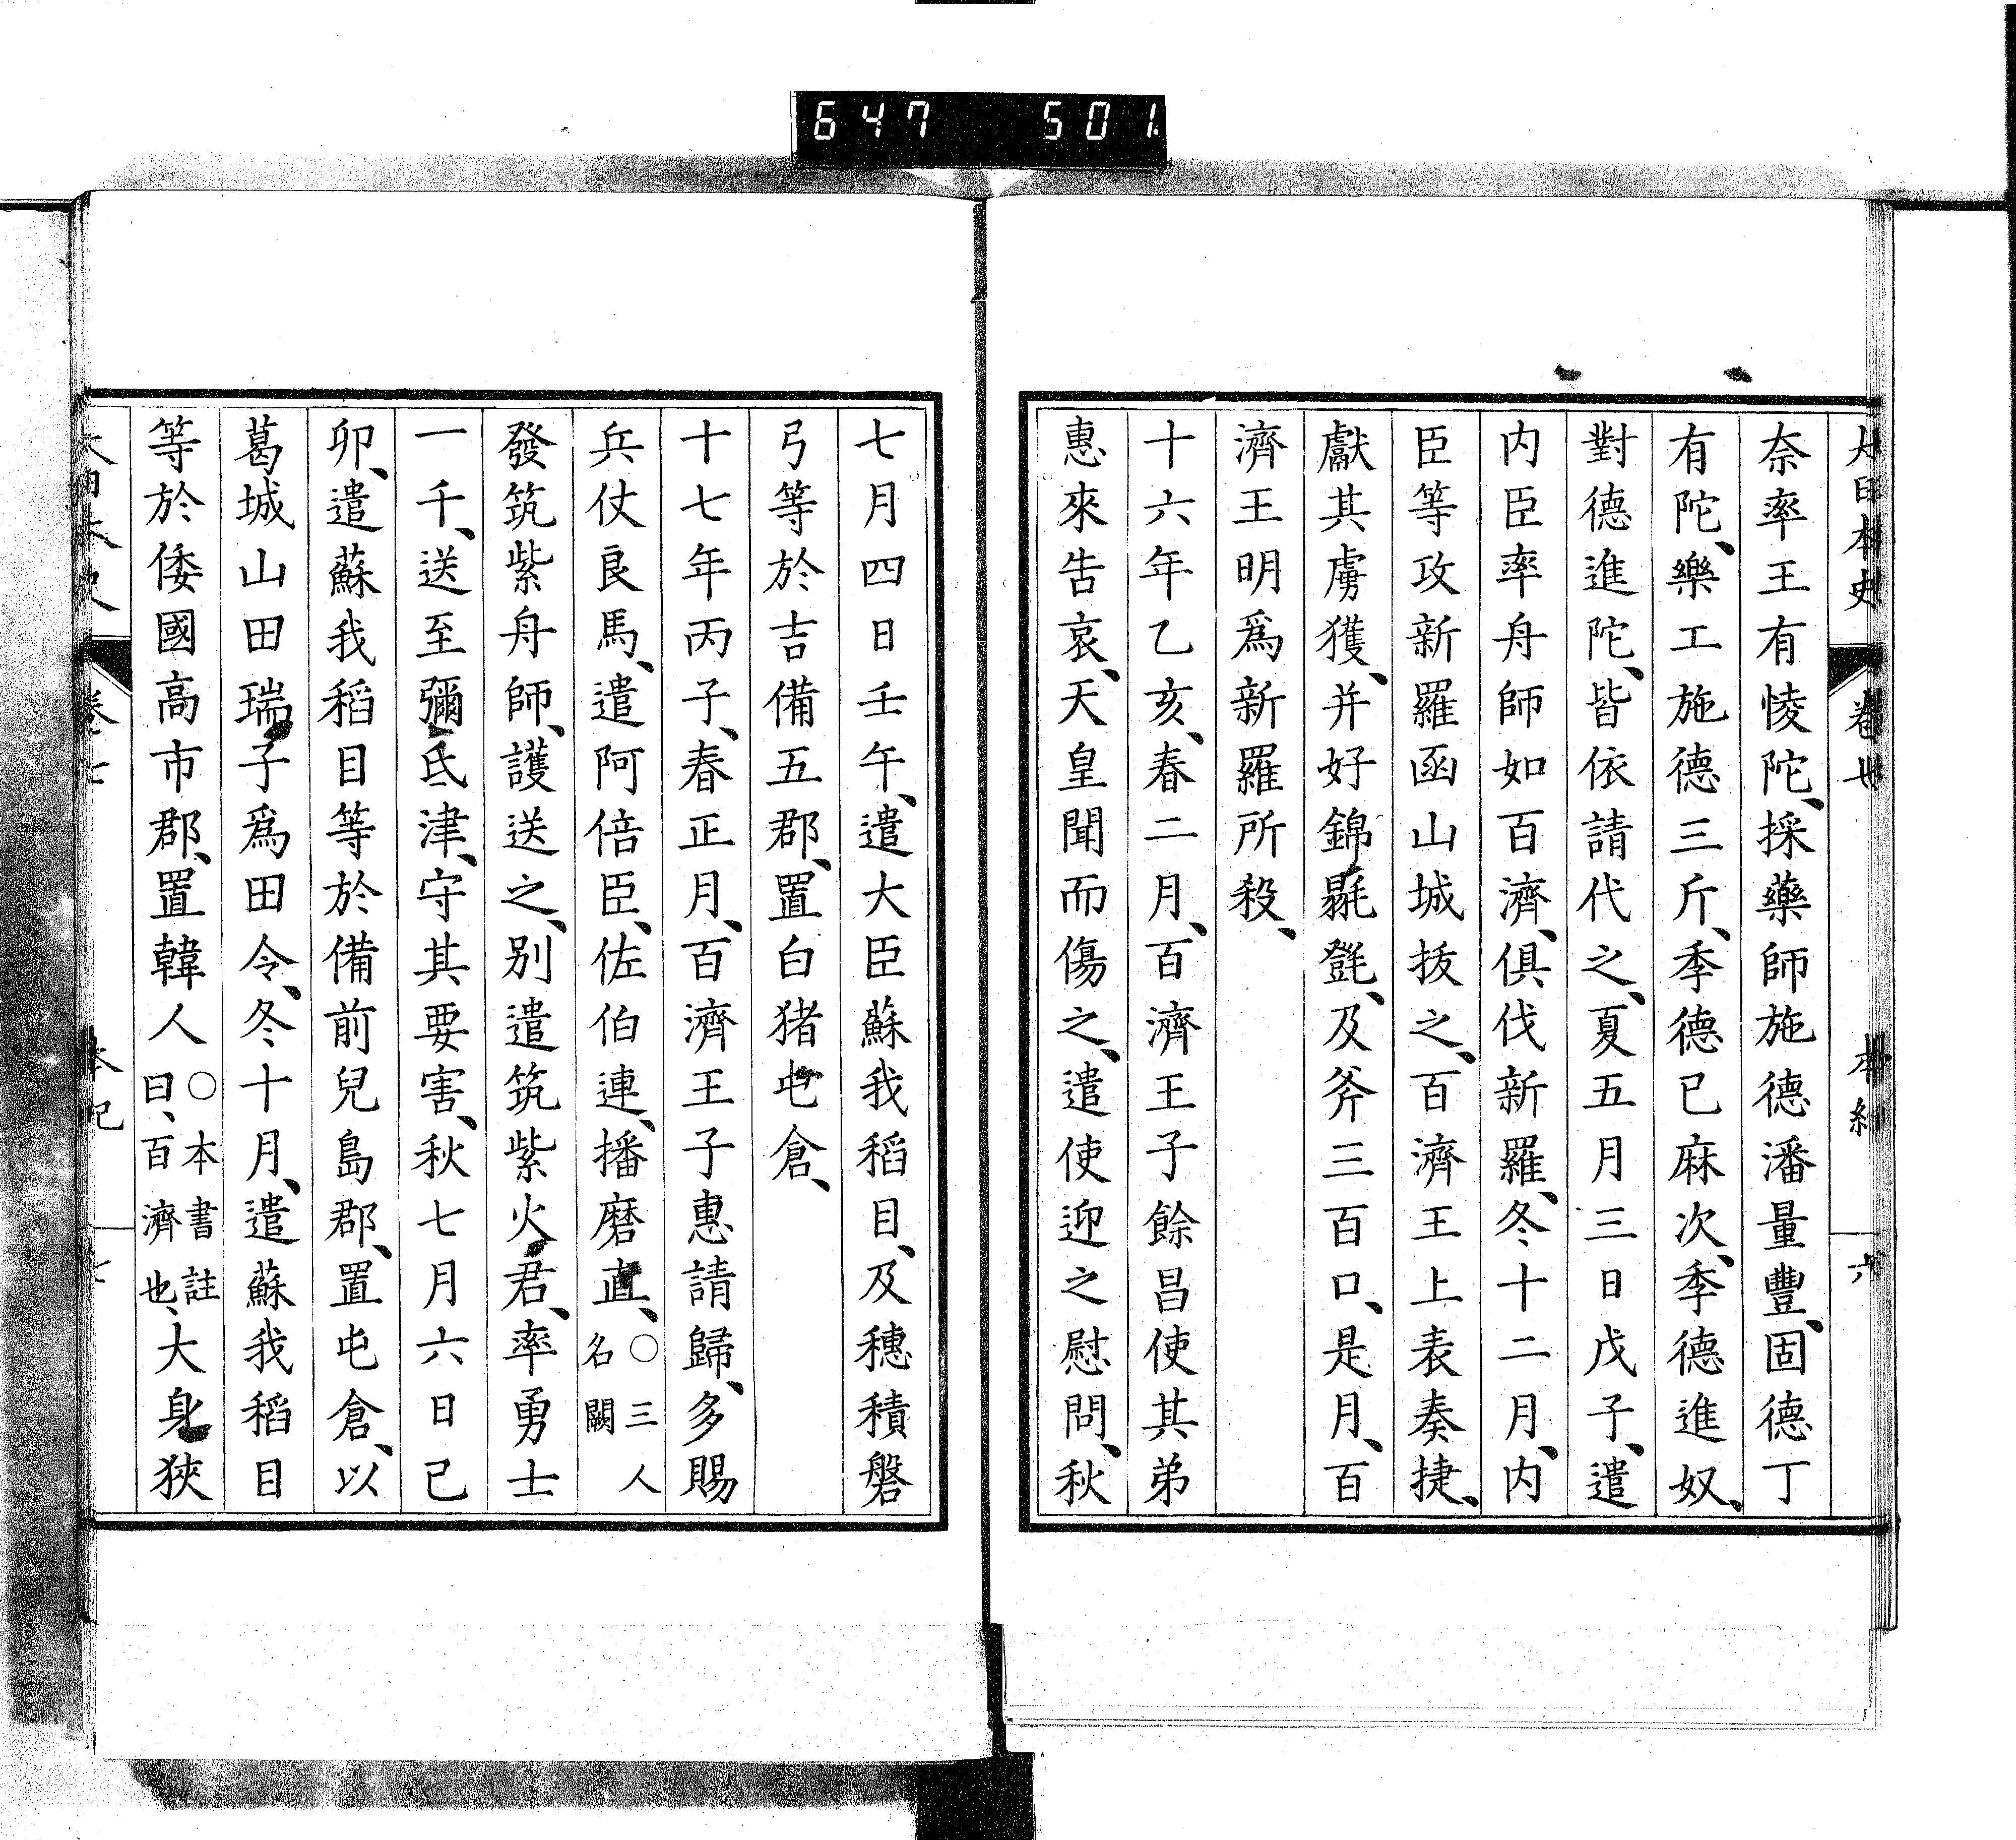 647 501
大日本史 卷七 本紀 六
奈率王有㥄陀、採藥師施德潘量豐、固德丁
有陀、樂工施德三斤、季德已麻次、季德進奴、
對德進陀、皆依請代之、夏五月三日戊子、遣
内臣率舟師如百濟、俱伐新羅、冬十二月、内
臣等攻新羅函山城拔之、百濟王上表奏捷、
獻其虜獲、并好錦㲲㲪、及斧三百口、是月、百
濟王明爲新羅所殺、
十六年乙亥、春二月、百濟王子餘昌使其弟
惠來告哀、天皇聞而傷之、遣使迎之慰問、秋
七月四日壬午、遣大臣蘇我稻目、及穗積磐
弓等於吉備五郡、置白猪屯倉、
十七年丙子、春正月、百濟王子惠請歸、多賜
兵仗良馬、遣阿倍臣、佐伯連、播磨直、○三人名闕
發筑紫舟師、護送之、別遣筑紫火君、率勇士
一千、送至彌氐津、守其要害、秋七月六日己
卯、遣蘇我稻目等於備前兒島郡、置屯倉、以
葛城山田瑞子爲田令、冬十月、遣蘇我稻目
等於倭國高市郡、置韓人○本書註曰、百濟也、大身狹
大日本史 卷七 本紀 七